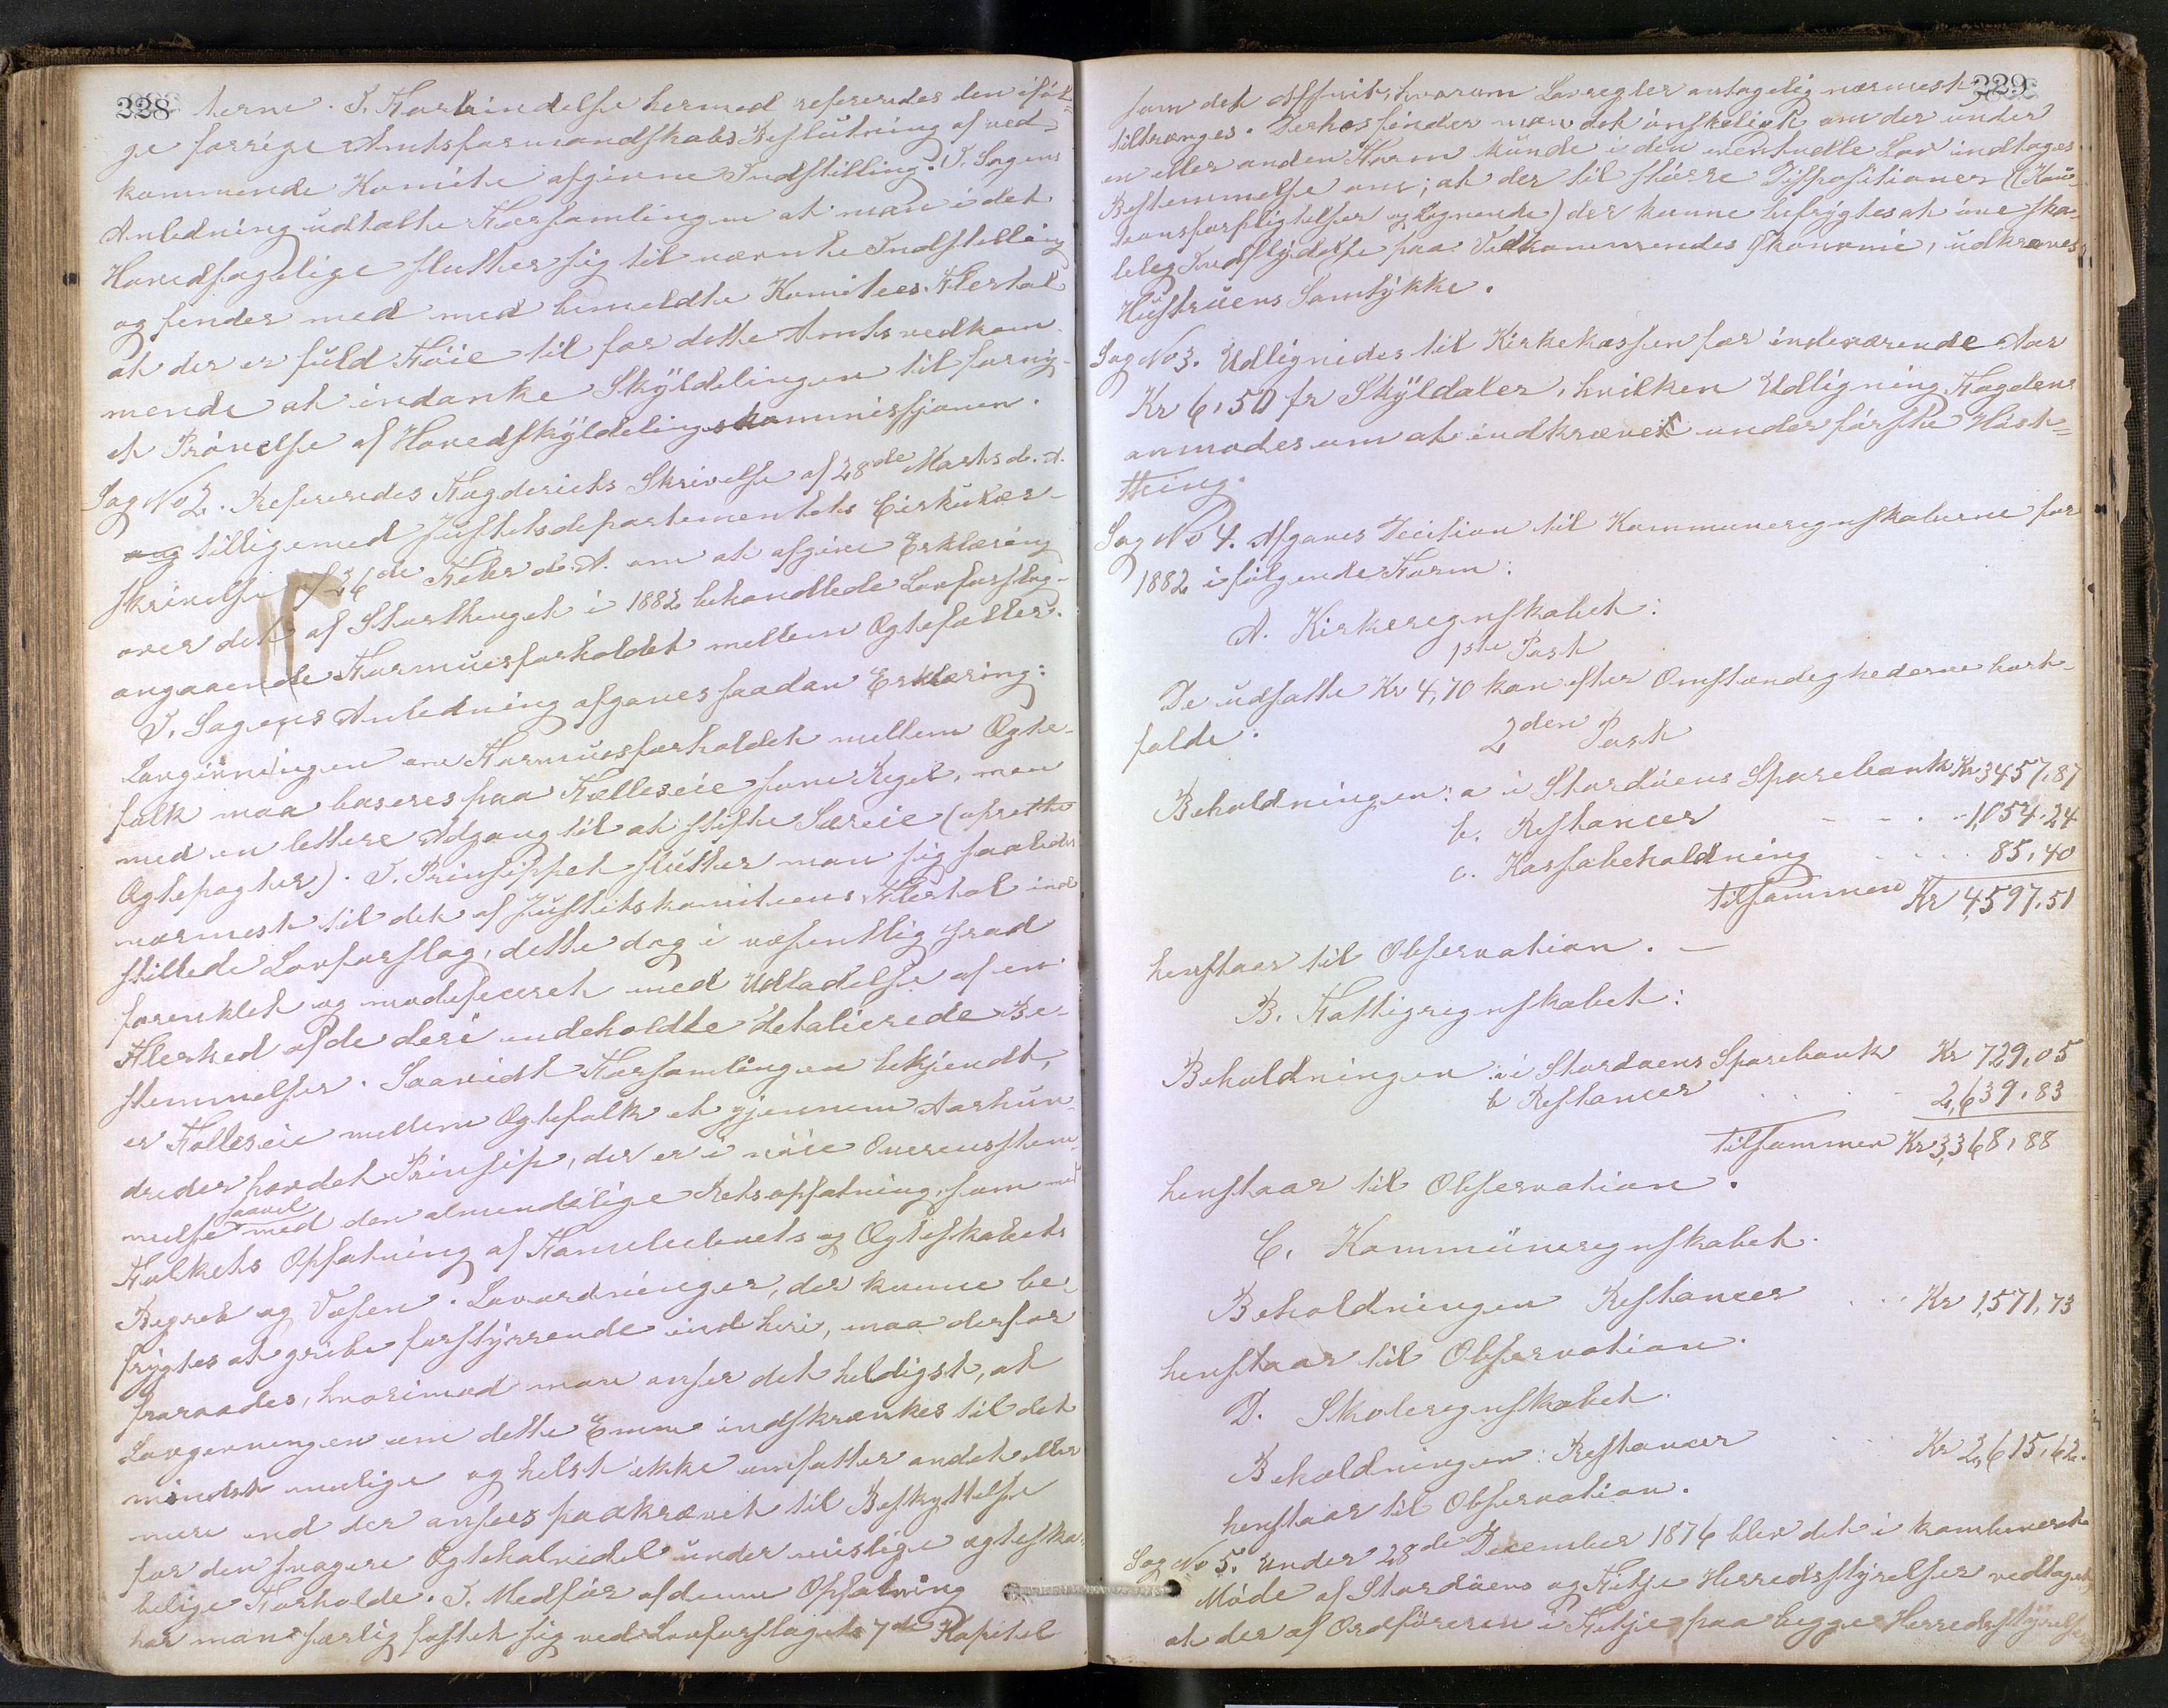 228
terne. I Forbindelse hermed refereredes den iføl=
ge forrige Amtsformandskabs Beslutning af ved-
kommende Komite afgivne Indstilling. I Sagens
Anledning udtalte Forsamlingen at man i det
Hovedsagelige slutter sig til nævnte Indstilling
og finder med med bemeldte Komitees Flertal
at der er fuld Føie til for dette Amts vedkom-
mende at indanke Skyldelingen til forny-
et Prøvelse af Hovedskyldelingskommissjonen.
Sag No 2. Refereredes Fogderiets Skrivelse af 28de Marts d. A.
ang tilligemed Justitsdepartementets Cirkulær-
skrivelse af 26de Febr d. A. om at afgive Erklæring
over det af Storthinget i 1882 behandlede Lovforslag
angaaende Formuesforholdet mellem Ægtefæller.
I Sagens Anledning afgaves saadan Erklæring:
Lovgivningen om Formuesforholdet mellem Ægte-
folk maa baseres paa Fælleseie som Regel, men
med en lettere Adgang til at stifte Særeie (oprette
Ægtepagter). I Prinsippet slutter man sig saaledes
nærmest til det af Justitskomiteens Flertal ind
stillede Lovforslag, dette dog i væsentlig Grad
forenklet og modificeret med Udladelse af en
Flerhed af de deri indeholdte detalierede Be-
stemmelser. Saavidt Forsamlingen bekjendt,
er Fælleseie mellem Ægtefolk et gjennem Aarhun-
dreder hævdet Prinsip, der er i nøie Overensstem-
melse saavel med den almindelige Retsopfatning, som med
Folkets Opfatning af Familielivets og Ægteskabets
Begreb og Væsen. Lovordninger, der kunne be-
frygtes at gribe forstyrrende ind heri, maa derfor
fraraades, hvorimod man anser det heldigst, at
Lovgivningen om dette Emne indskrænkes til det
mindst mulige og helst ikke omfatter andet eller
mere end der ansees paakrævet til Beskyttelse
for den svagere Ægtehalvdel under uislige ægteska-
belige Forholde. I Medfør af denne Opfatning
har man særlig fæstet sig ved Lovforslagets 7de Kapitel
229
som det Afsnit, hvorom Lovregler antagelig nærmest
tiltrænges. Derhos finder man det ønskeligt om der under
en eller anden Form kunde i den eventuelle Lov indtages
Bestemmelse om; at der til større Dispositioner (Kau-
tionsforpligtelser og Lignende) der kunne befrygtes at øve ska-
delig Indflydelse paa Vedkommendes Økonomi, udkræves
Hustruens Samtykke.
Sag No 3. Udlignedes til Kirkekassen for indeværende Aar
Kr 6,50 pr Skyldaler, hvilken Udligning Fogden
anmodes om at indkræves under første Høst-
thing.
Sag No 4. Afgaves Decision til Kommuneregnskaberne for
1882 i følgende Form:
A. Kirkeregnskabet:
1ste Post
De udsatte Kr 4,70 kan efter Omstændighederne bort-
falde.
2den Post
Beholdningen: a i Stordøens Sparebank Kr 3457,87
b. Restancer - - . . 1,054.24
c. Kassabeholdning . . . . 85,40
tilsammen Kr 4,597,51
henstaar til Observation. —
B. Fattigregnskabet:
Beholdningen a i Stordøens Sparebank Kr 729,05
b Restancer . . . . 2,639,83
tilsammen Kr 3,368,88
henstaar til Observation.
C. Kommuneregnskabet.
Beholdningen Restancer . . . Kr 1,571,73
henstaar til Observation.
D. Skoleregnskabet.
Beholdningen: Restancer . . . Kr 2,615,62.
henstaar til Observation.
Sag No 5. Under 28de December 1876 blev det i kombineret
Møde af Stordøens og Fitje Herredsstyrelser vedtaget
at der af Ordføreren i Fitje paa begge Herredsstyrelser